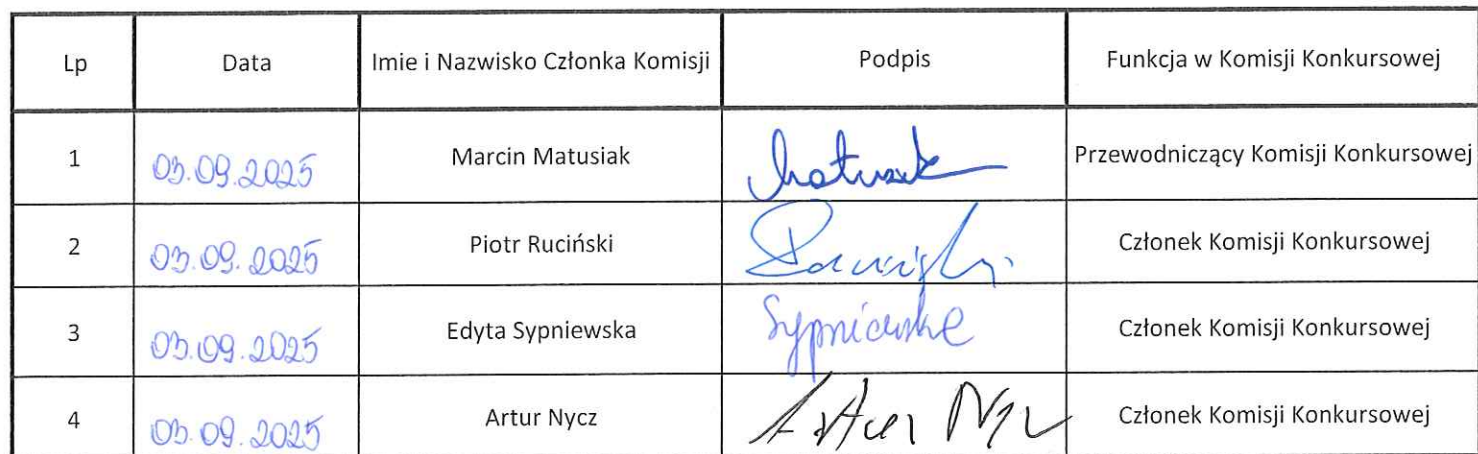 Lp Data Imie i Nazwisko Członka Komisji Podpis Funkcja w Komisji Konkursowej
1 03.09.2025 Marcin Matusiak Przewodniczący Komisji Konkursowej
2 03.09.2025 Piotr Ruciński Członek Komisji Konkursowej
3 03.09.2025 Edyta Sypniewska Sypniewska Członek Komisji Konkursowej
4 03.09.2025 Artur Nycz Artur Członek Komisji Konkursowej